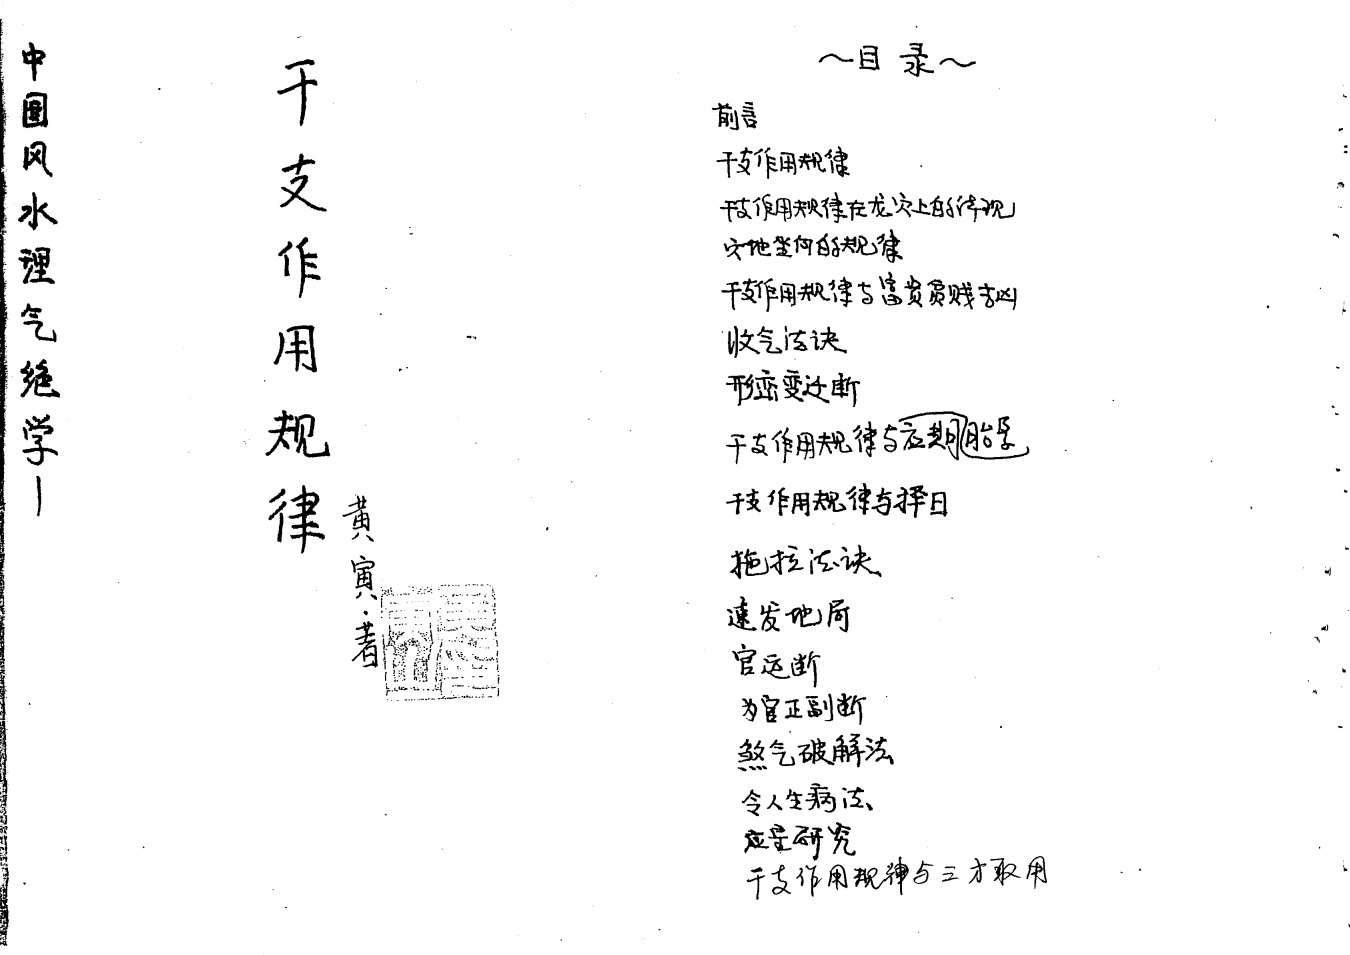 中国风水理气绝学—
干支作用规律
黄寅·著
～目录～
前言
干支作用规律
干支作用规律在龙穴上的体现
穴地坐向的规律
干支作用规律与富贵贫贱吉凶
收气法诀
形峦变迁断
干支作用规律与应期胎孕
干支作用规律与择日
拖拉法诀
速发地局
官运断
为官正副断
煞气破解法
令人生病法
应星研究
干支作用规律与三才取用